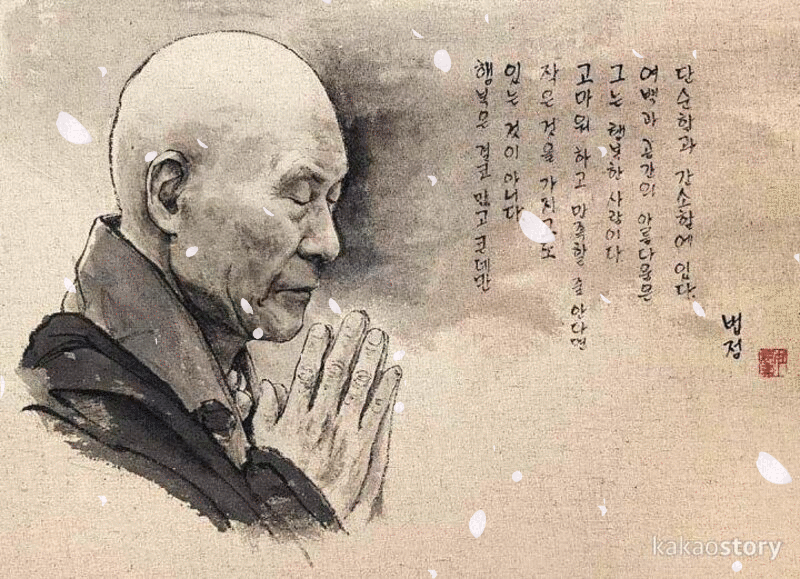 행복은 결코 많고 큰데만
있는 것이 아니다.
작은 것을 가지고도
고마워 하고 만족할 줄 안다면
그는 행복한 사람이다.
여백과 공간의 아름다움은
단순함과 간소함에 있다.
법정
kakaostory